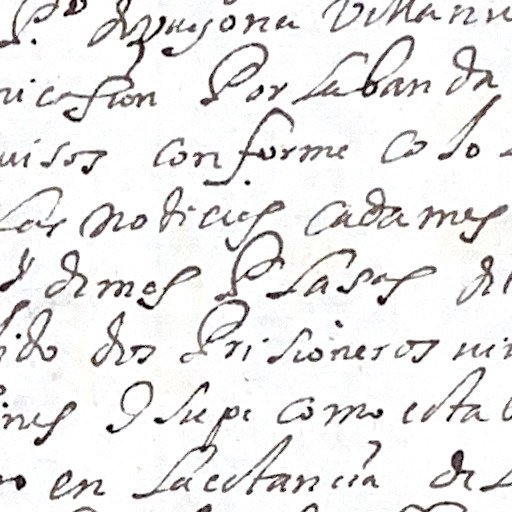 P.º de Vayona Villanu
nicasion Por la banda
uisos conforme co lo
las noticias cada mes
demes P. las as de
ido dos Prisioneros vi
ines q supe como esta
ro en la estancia de L